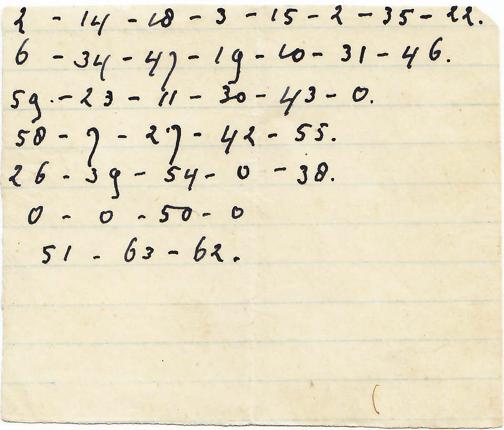 2 - 14 - 18 - 3 - 15 - 2 - 35 - 22.
6 - 34 - 47 - 19 - 10 - 31 - 46.
59 - 23 - 11 - 30 - 43 - 0.
58 - 7 - 27 - 42 - 55.
26 - 39 - 54 - 0 - 38.
0 - 0 - 50 - 0
51 - 63 - 62.